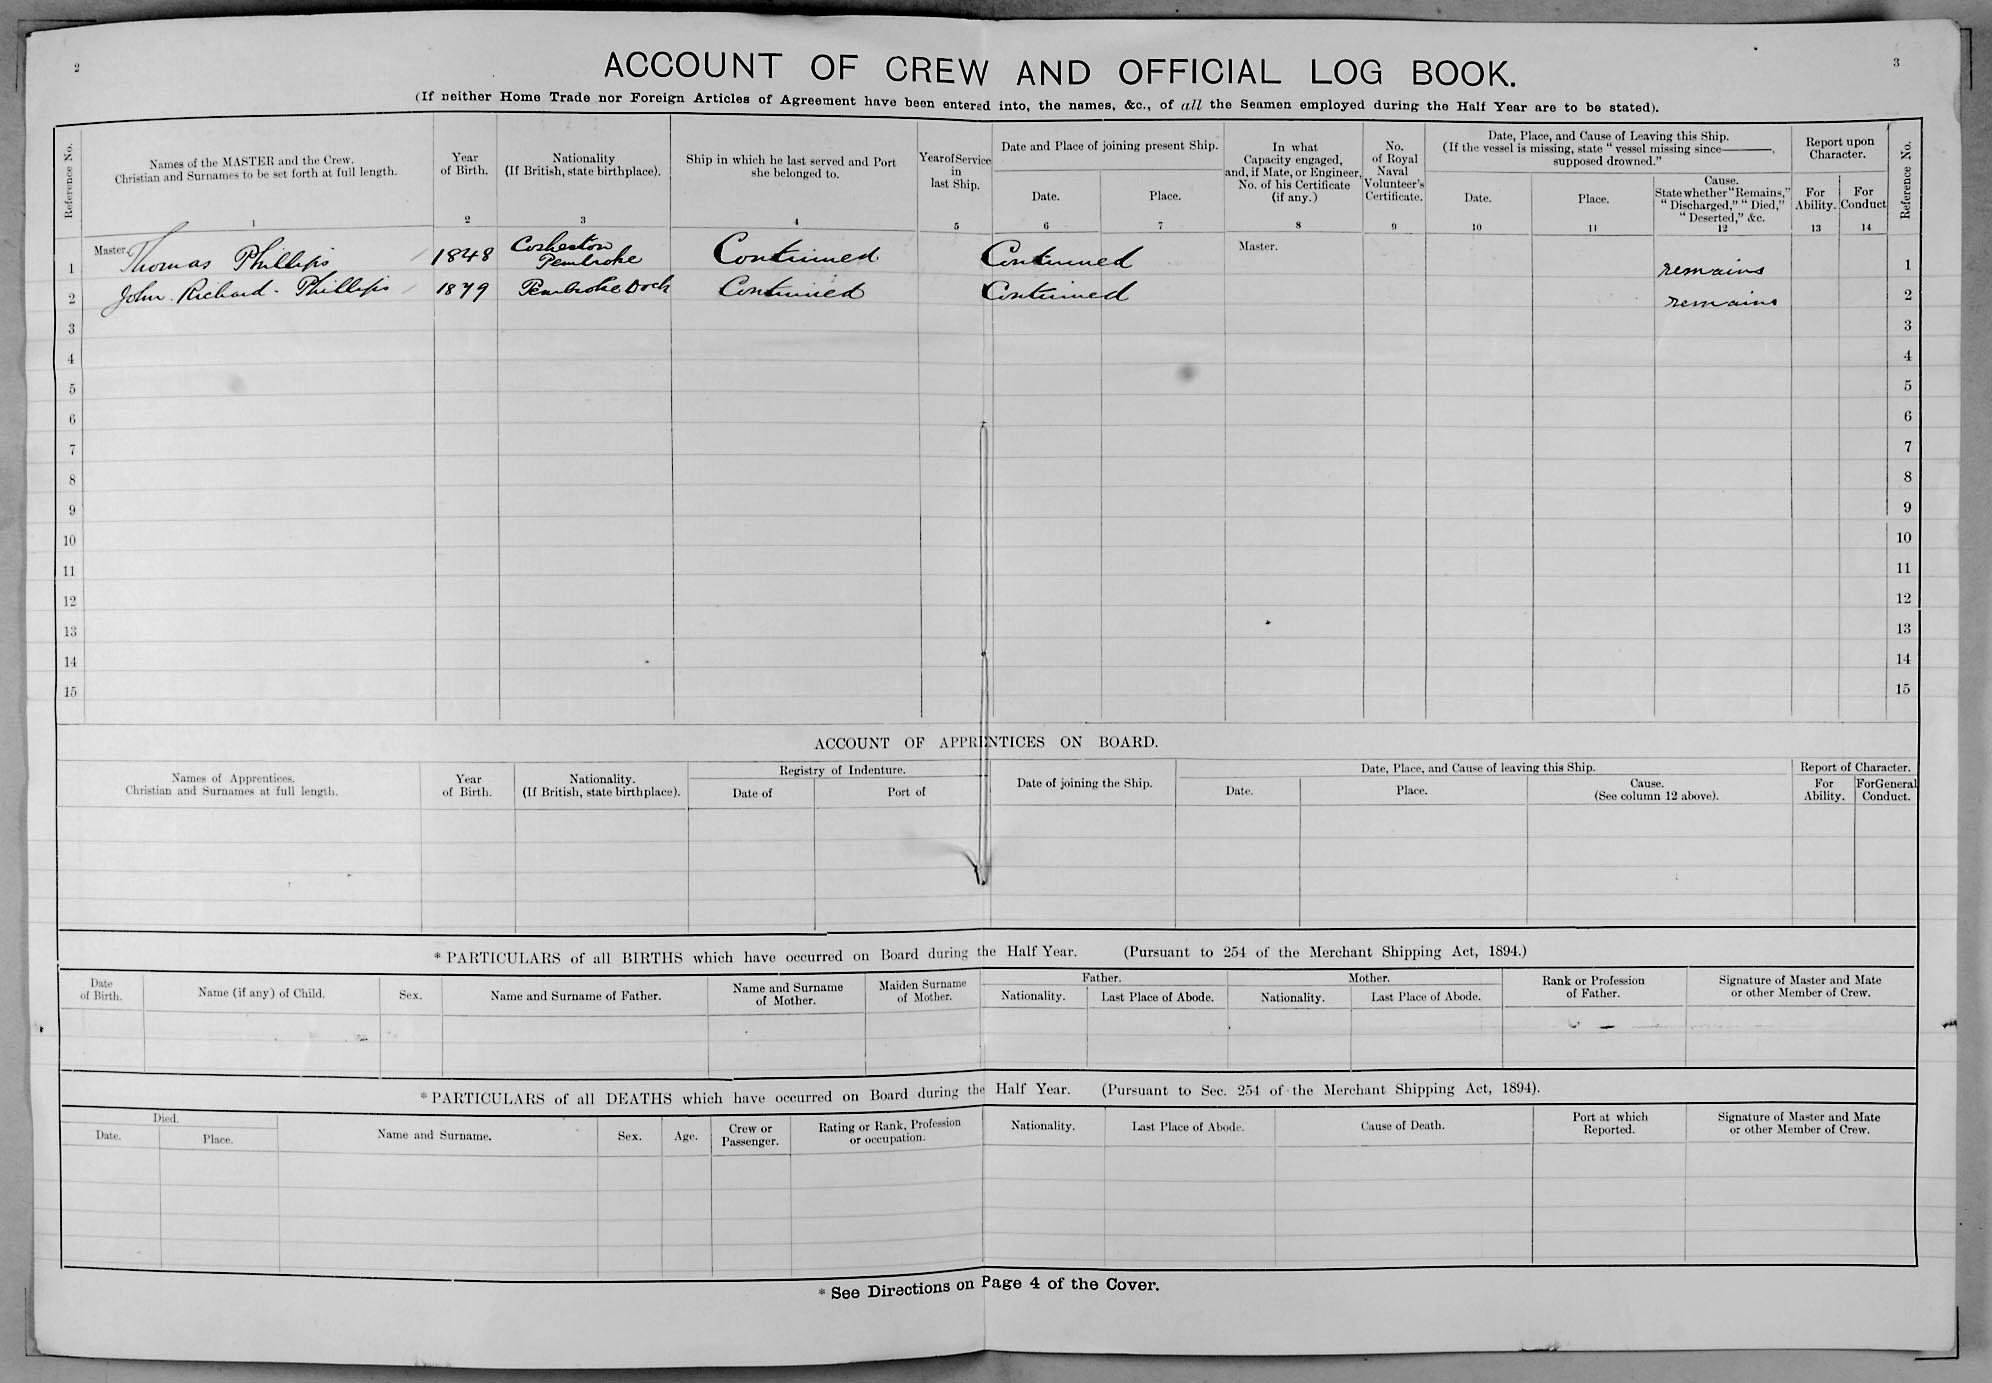 2
3
ACCOUNT OF CREW AND OFFICIAL LOG BOOK.
(If neither Home Trade nor Foreign Articles of Agreement have been entered into, the names, &c., of all the Seamen employed during the Half Year are to be stated).
Reference No.
Names of the MASTER and the Crew.
Christian and Surnames to be set forth at full length.
1
Year
of Birth.
2
Nationality
(If British, state birthplace).
3
Ship in which he last served and Port
she belonged to.
4
Year of Service
in
last Ship.
5
Date and Place of joining present Ship.
Date.
6
Place.
7
In what
Capacity engaged,
and, if Mate, or Engineer,
No. of his Certificate
(if any.)
8
No.
of Royal
Naval
Volunteer's
Certificate.
9
Date, Place, and Cause of Leaving this Ship.
(If the vessel is missing, state "vessel missing since———,
supposed drowned."
Date.
10
Place.
11
Cause.
State whether "Remains,"
"Discharged," "Died,"
"Deserted," &c.
12
Report upon
Character.
For
Ability.
13
For
Conduct
14
Reference No.
1 Master. Thomas Phillips 1848 Cosheston Pembroke Continued Continued Master. remains 1
2 John Richard - Phillips 1879 Pembroke Dock Continued Continued remains 2
3 3
4 4
5 5
6 6
7 7
8 8
9 9
10 10
11 11
12 12
13 13
14 14
15 15
ACCOUNT OF APPRENTICES ON BOARD.
Names of Apprentices.
Christian and Surnames at full length.
Year
of Birth.
Nationality.
(If British, state birthplace).
Registry of Indenture.
Date of
Port of
Date of joining the Ship.
Date, Place, and Cause of leaving this Ship.
Date.
Place.
Cause.
(See column 12 above).
Report of Character.
For
Ability.
For General
Conduct.
* PARTICULARS of all BIRTHS which have occurred on Board during the Half Year. (Pursuant to 254 of the Merchant Shipping Act, 1894.)
Date
of Birth.
Name (if any) of Child.
Sex.
Name and Surname of Father.
Name and Surname
of Mother.
Maiden Surname
of Mother.
Father.
Nationality.
Last Place of Abode.
Mother.
Nationality.
Last Place of Abode.
Rank or Profession
of Father.
Signature of Master and Mate
or other Member of Crew.
* PARTICULARS of all DEATHS which have occurred on Board during the Half Year. (Pursuant to Sec. 254 of the Merchant Shipping Act, 1894).
Died.
Date.
Place.
Name and Surname.
Sex.
Age.
Crew or
Passenger.
Rating or Rank, Profession
or occupation.
Nationality.
Last Place of Abode.
Cause of Death.
Port at which
Reported.
Signature of Master and Mate
or other Member of Crew.
* See Directions on Page 4 of the Cover.